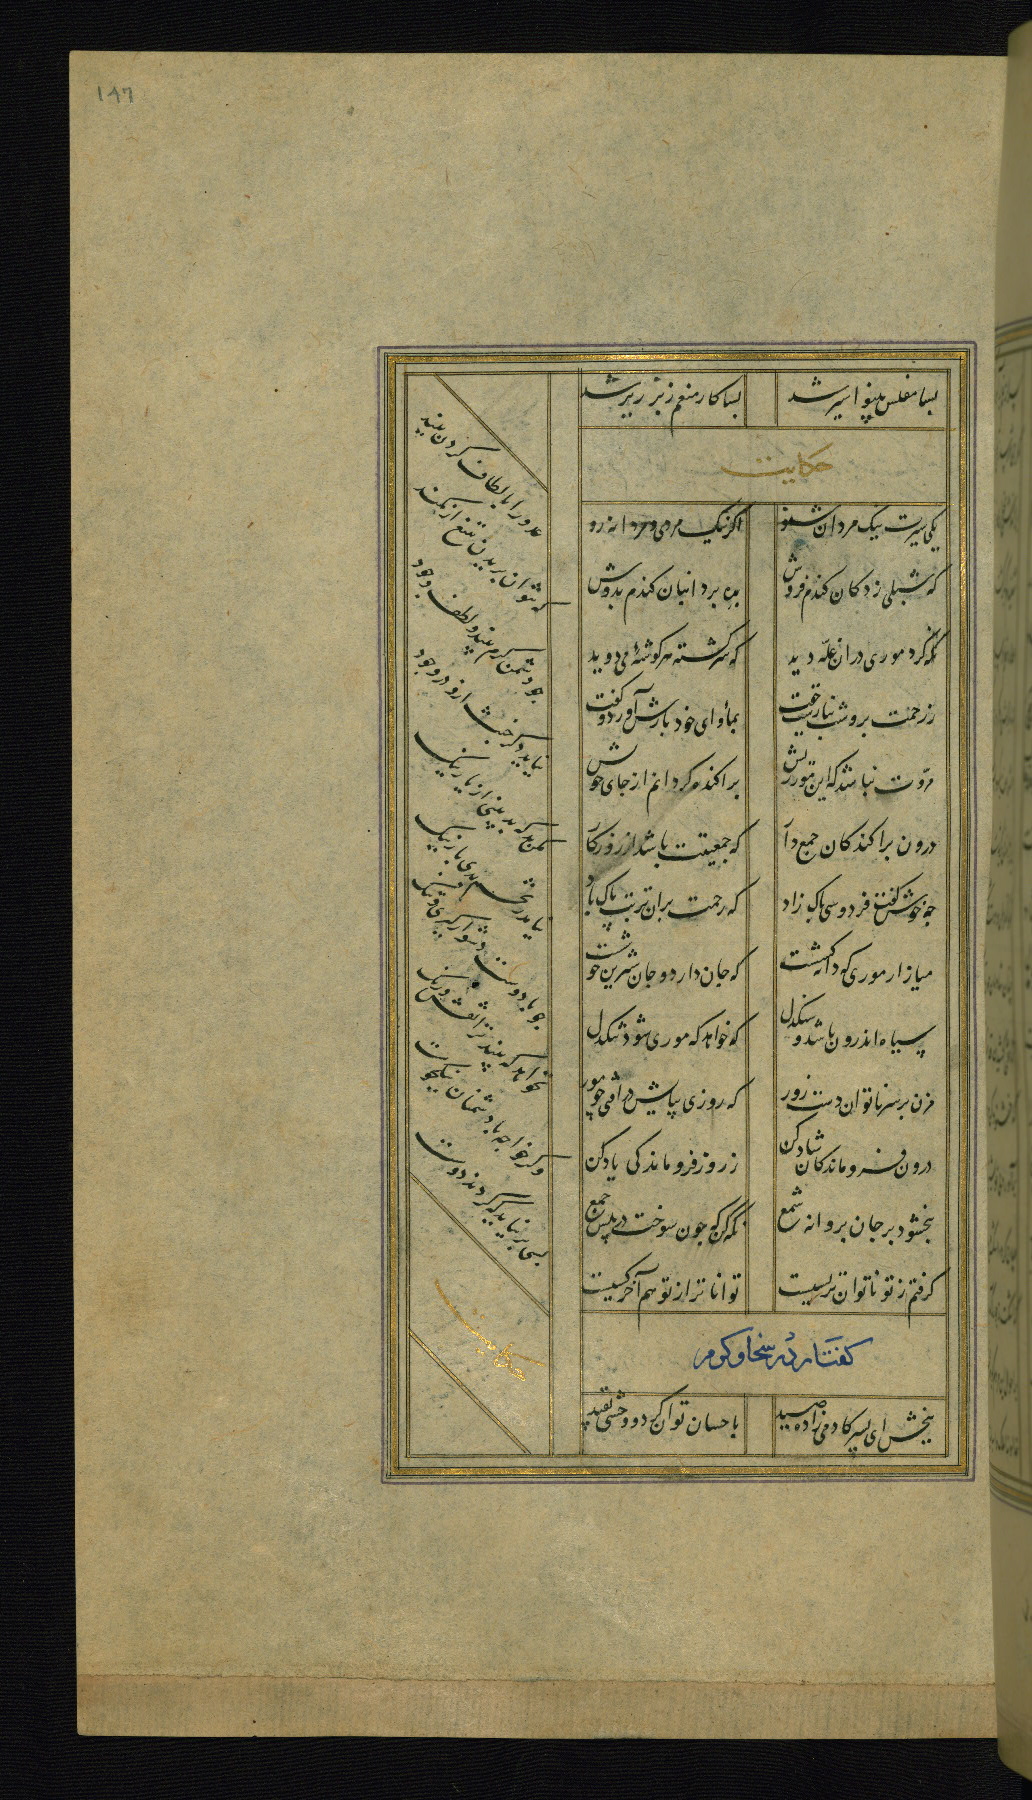 147
بسا مفلس بینوا سیر شد بسا کار منعم زبر زیر شد
حکایت
یکی سیرت نیک مردان شنو اگر نیک مردی و مردانه رو
که شبلی ز دکان گندم فروش بده برد انبان گندم بدوش
نگه کرد موری در ان غله دید که سرگشته هر گوشهٔ می دوید
ز رحمت برو شب نیارست خفت بماوای خود بازش آورد و گفت
مروت نباشد که این مور ریش پراکنده گردانم از جای خویش
درون پراکندگان جمع دار که جمعیتت باشد از روزگار
چه خوش گفت فردوسی پاک زاد که رحمت بران تربت پاک باد
میازار موری که دانه کشست که جان دارد و جان شیرین خوشست
سیاه اندرون باشد و سنگدل که خواهد که موری شود تنگدل
مزن بر سر ناتوان دست زور که روزی بپایش در افتی چو مور
درون فروماندگان شاد کن ز روز فروماندگی یاد کن
نبخشود بر جان پروانه شمع نگه کن که چون سوخت در پیش جمع
گرفتم ز تو ناتوان تر بسیست تواناتر از تو هم آخر کسیست
گفتار در سخا و کرم
ببخش ای پسر کادمی زاده صید باحسان توان کرد و وحشی بقید
عدو را بالطاف گردن ببند که نتوان بریدن بتیغ از کمند
چو دشمن کرم بیند و لطف و جود نیاید دگر خبث ازو در وجود
مکن بد که بد بینی از یار نیک نیاید ز تخم بدی بار نیک
چو با دوست دشوار گیری و تنگ نخواهد که بیند ترا نقش و رنگ
وگر خواجه با دشمنان نیکخوست بسی بر نیاید که گردند دوست
حکایت